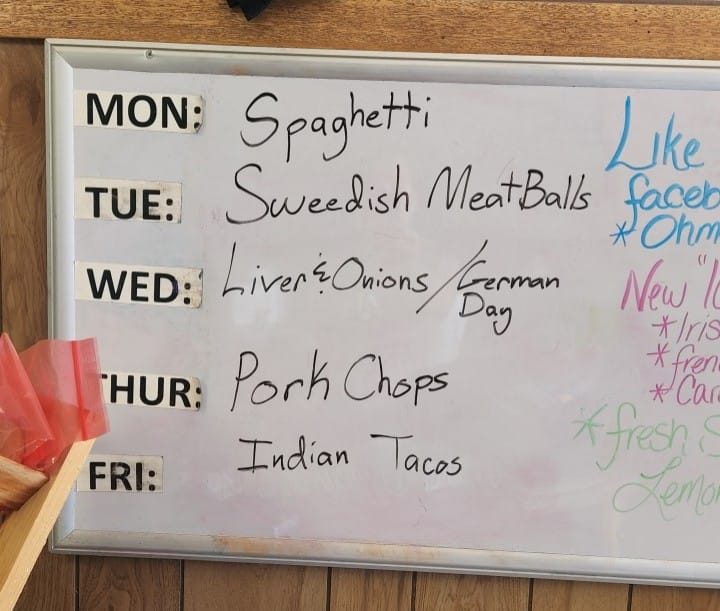 MON: Spaghetti
TUE: Sweedish MeatBalls
WED: Liver & Onions / German
Day
THUR: Pork Chops
FRI: Indian Tacos
Like
faceb
*Ohm
New "I
*Iris
*fren
*Car
*fresh S
Lemon